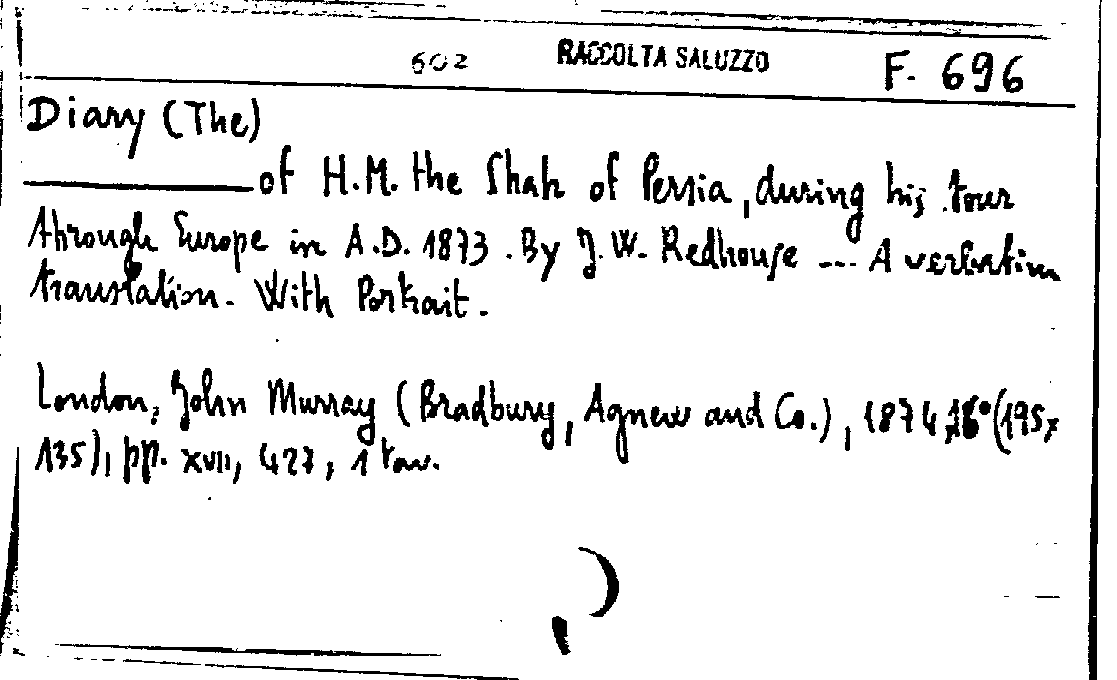 602 RACCOLTA SALUZZO F. 696
Diary (The)
of H.M. the Shah of Persia, during his tour
through Europe in A.D. 1873. By J.W. Redhouse --- A verbatim
translation. With Portrait.
London, John Murray (Bradbury, Agnew and Co.), 1874, 16° (195x
135), pp. XVII, 427, 1 tav.